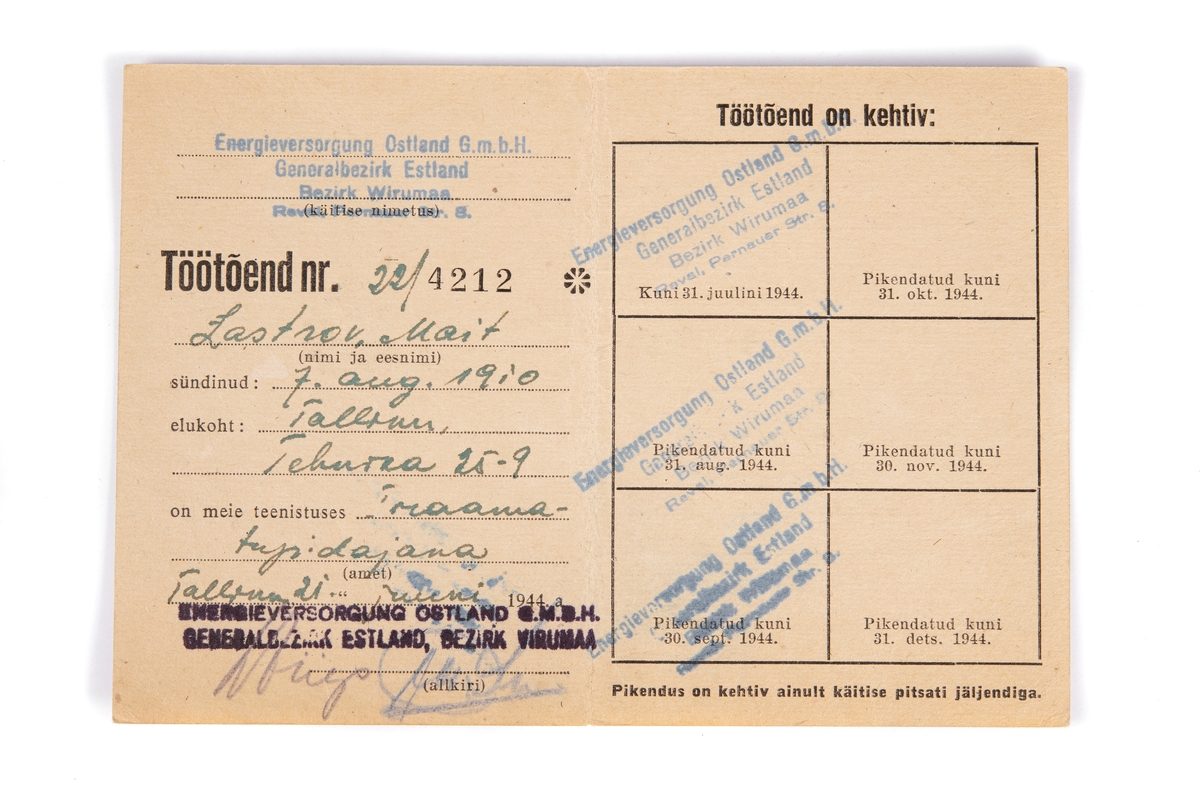 Energieversorgung Ostland G.m.b.H.
Generalbezirk Estland
Bezirk Wirumaa
Reval, Pernauer Str. 8.
(käitise nimetus)
Töötõend nr. 22/4212
Lastrov, Mait
(nimi ja eesnimi)
sündinud: 7. aug. 1910
elukoht: Tallinn,
25-9
on meie teenistuses Praama-
tupidajana
(amet)
Tallinn 21. juuni 1944 a.
ENERGIEVERSORGUNG OSTLAND G.M.B.H.
GENERALBEZIRK ESTLAND, BEZIRK VIRUMAA
(allkiri)
Töötõend on kehtiv:
Energieversorgung Ostland G.m.b.H.
Generalbezirk Estland
Bezirk Wirumaa
Reval, Pernauer Str. 8.
Kuni 31. juulini 1944.
Pikendatud kuni
31. okt. 1944.
Energieversorgung Ostland G.m.b.H.
Generalbezirk Estland
Bezirk Wirumaa
Reval, Pernauer Str. 8.
Pikendatud kuni
31. aug. 1944.
Pikendatud kuni
30. nov. 1944.
Energieversorgung Ostland G.m.b.H.
Generalbezirk Estland
Bezirk Wirumaa
Str. 8.
Pikendatud kuni
30. sept. 1944.
Pikendatud kuni
31. dets. 1944.
Pikendus on kehtiv ainult käitise pitsati jäljendiga.